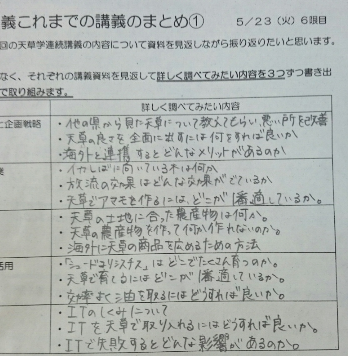 義これまでの講義のまとめ① 5/23（火）6限目
回の天草学連続講義の内容について資料を見返しながら振り返りたいと思います。
なく、それぞれの講義資料を見返して詳しく調べてみたい内容を3つずつ書き出
で取り組みます。
詳しく調べてみたい内容
と企画戦略
・他の県から見た天草について教えてもらい、悪い所を改善
・天草の良さを全面に出すには何をすれば良いか
・海外と連携するとどんなメリットがあるのか
業
・イカしばに向いている木は何か
・放流の効果はどんな効果がでているか
・天草でアマモを作るには、どこが1番適しているか。
・天草の土地に合った農産物は何か。
・天草の農産物を作って何か作れないのか。
・海外に天草の商品を広めるための方法
活用
・「シュードコリシスチス」はどこでたくさん育つのか。
・天草で育てるにはどこが1番適しているか。
・効率よく油を取るにはどうすれば良いか。
・ITのしくみについて
・ITを天草で取り入れるにはどうすれば良いか。
・ITで失敗するとどんな影響があるか。